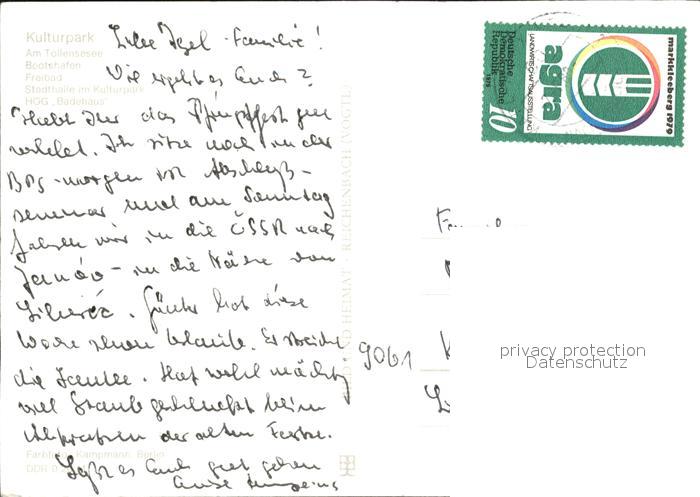 Kulturpark
Am Tollensesee
Bootshafen
Freibad
Stadthalle im Kulturpark
HOG „Badehaus"
Liebe Igel-Familie!
Wie geht es Euch?
Habt Ihr das Pfingstfest gut
verlebt. Ich sitze noch in der
BPS - morgen ist Abschluß-
seminar und am Sonntag
fahren wir in die ČSSR nach
Janov - in die Nähe von
Liberec. Günter hat diese
Woche schon Urlaub. Er streicht
die Laube. Hat wohl mächtig
viel Staub geschluckt beim
Abkratzen der alten Farbe.
Laßt es Euch gut gehen
Eure
9061
BILD UND HEIMAT · REICHENBACH (VOGTL)
Farbfoto: Kampmann, Berlin
DDR
markkleeberg 1979
agra
LANDWIRTSCHAFTSAUSSTELLUNG
Deutsche
Demokratische
Republik
1979
10
privacy protection
Datenschutz